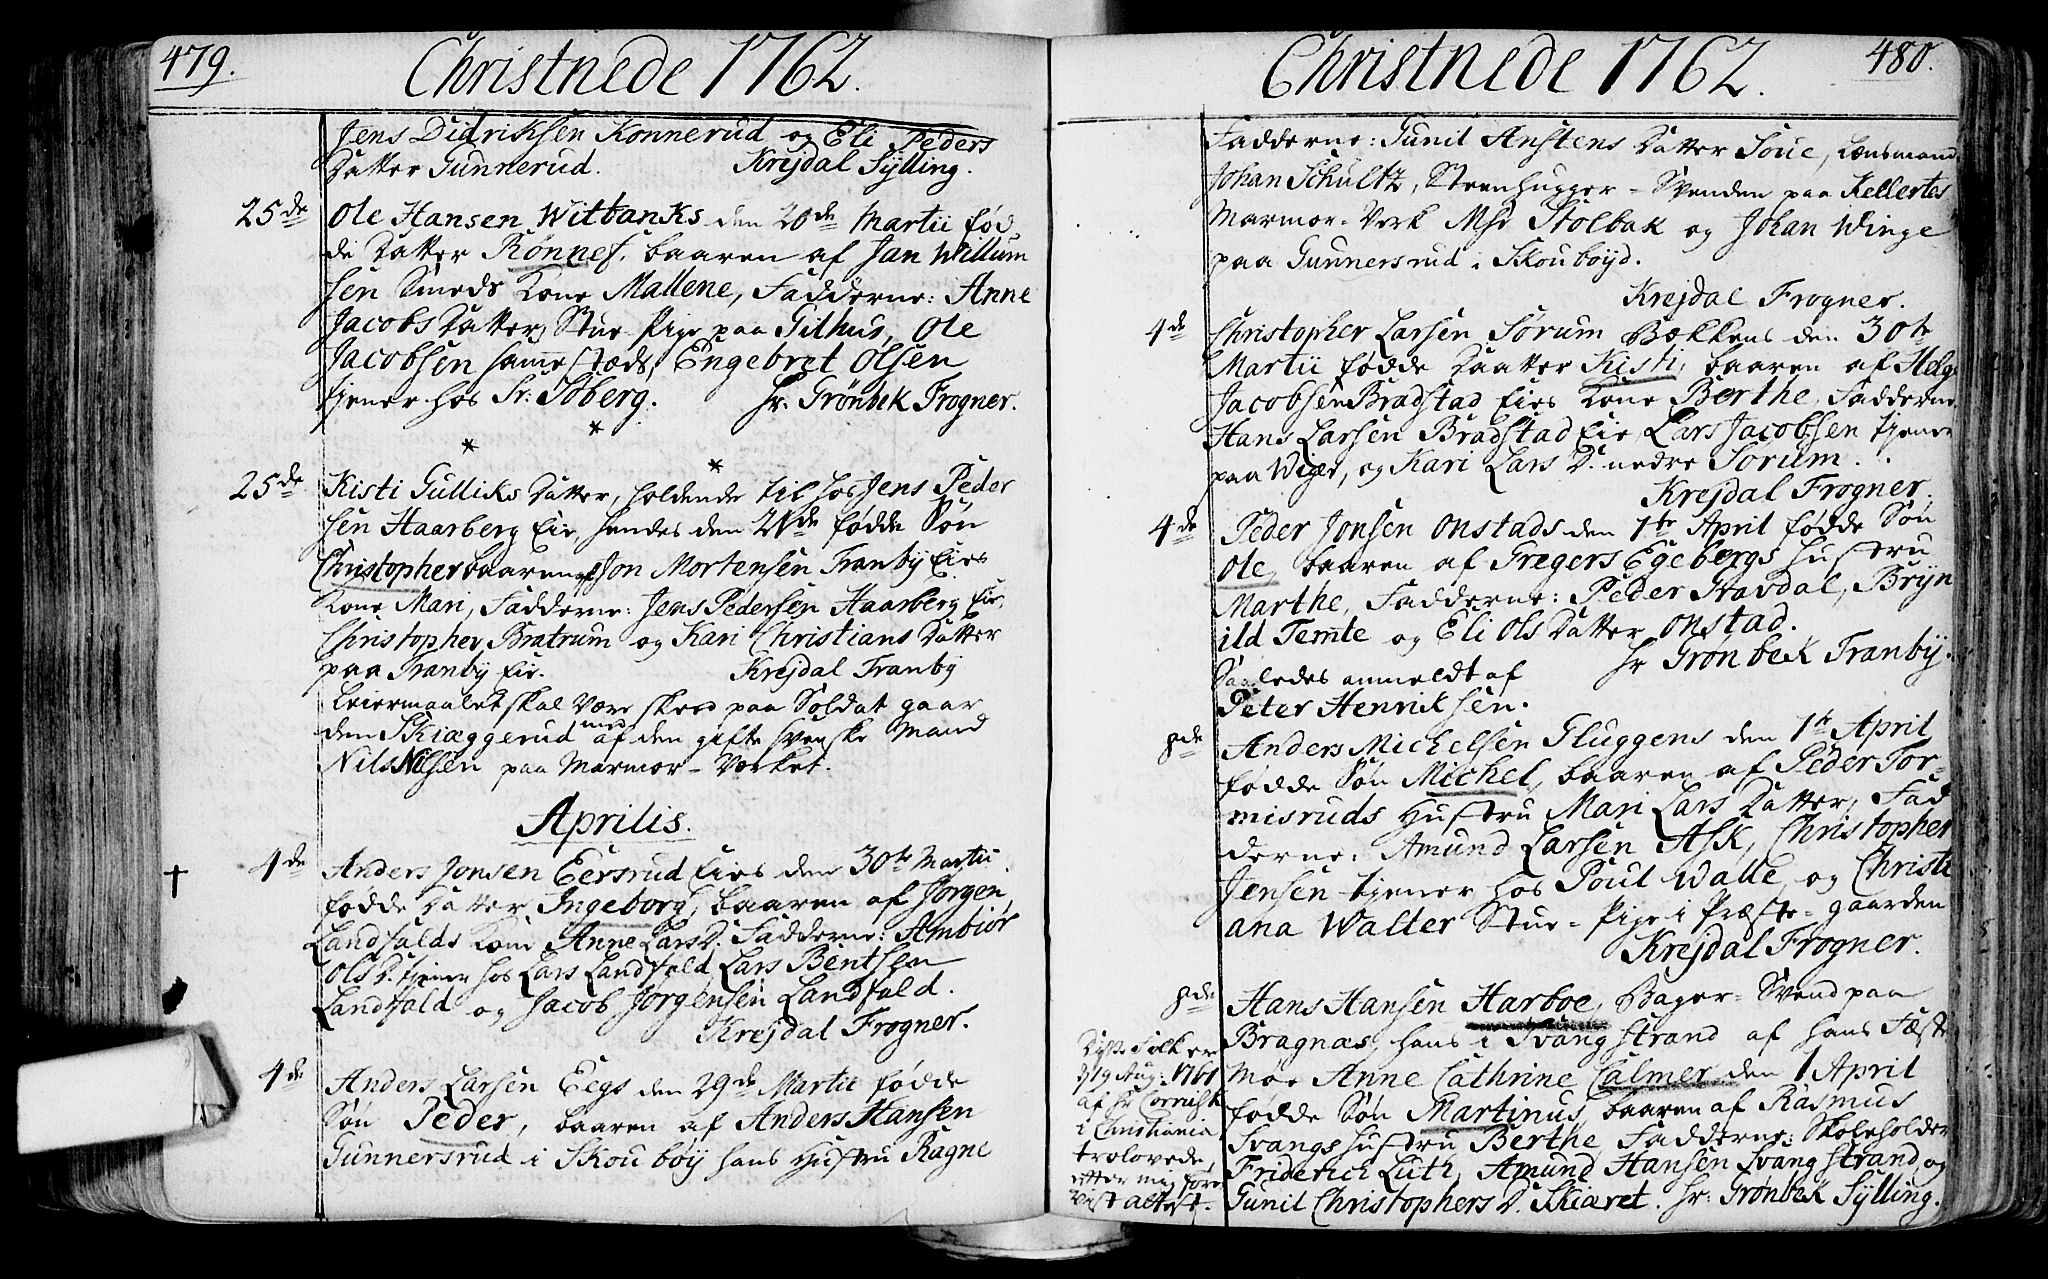 479.
Christnede 1762.
Jens Didriksen Konnerud og Eli Peders
Datter Gunnerud. Krejdal Sylling.
25de Ole Hansen Witbanks den 20de Martii fød,
de Datter Rønnef, baaren af Jan Willum
sen Smeds Kone Mallene, Fadderne: Anne
Jacobs Datter, Stue-Pige paa Gilhus, Ole
Jacobsen sammestæds, Engebret Olsen
tjener hos Sr: Soberg. Hr: Grønbek Frogner.
25de Kisti Gulliks Datter, holdende til hos Jens Peder
sen Haarberg Eie, hendes den 21de fødde Søn
Christopher baaren af Jon Mortensen Tranby Eies
Kone Mari, Fadderne: Jens Pedersen Haarberg Eie,
Christopher Bratrum og Kari Christians Datter
paa Tranby Eie. Krejdal Tranby
Leiermaalet skal være skeed paa Soldat gaar
den Skiæggerud med af den gifte svenske Mand
Nils Nilsen paa Marmor-Verket.
Aprilis.
4de Anders Jonsen Eersrud Eies den 30te Martii
fødde Datter Ingeborg, baaren af Jørgen
Landfalds Kone Anne Lars D. Fadderne: Ambiør
Ols D. tjener hos Lars Landfald, Lars Bentsen
Landfald og Jacob Jørgensen Landfald.
Krejdal Frogner.
4de Anders Larsen Eegs den 29de Martii fødde
Søn Peder, baaren af Anders Hansen
Gunnersrud i Skoubøy hans Hustru Ragne
480.
Christnede 1762.
Fadderne: Gunil Anstens Datter Soue, Lensmand
Johan Schultz, Steenhugger-Svenden paa Kellertas
Marmor-Verk Msr Stolbak og Johan Winge
paa Gunnersrud i Skoubøyd.
Krejdal Frogner.
4de Christopher Larsen Sørum Bækkens den 30te
Martii fødde Daatter Kisti, baaren af Helge
Jacobsen Bradstad Eies Kone Berthe, Fadderne
Hans Larsen Bradstad Eie, Lars Jacobsen tjener
paa Wiger, og Kari Lars D. nedre Sørum.
Krejdal Frogner.
4de Peder Jonsen Onstads den 1te April fødde Søn
Ole, baaren af Gregers Egebergs Hustru
Marthe, Fadderne: Peder Stavdal, Bryn
ild Temte og Eli Ols Datter Onstad.
Hr Grønbek Tranby.
Saaledes anmeldt af
Peter Henriksen.
8de Anders Michelsen Gluggens den 1te April
fødde Søn Michel, baaren af Peder Tor-
misruds Hustru Mari Lars Datter, Fad
derne: Amund Larsen Ask, Christopher
Jensen tjener hos Poul Walle, og Christi
ana Walter Stue-Pige i Præste-gaarden
Krejdal Frogner.
8de Hans Hansen Harboe, Bager-Svend paa
Bragnæs, hans i Svangstrand af hans Fæste
Møe Anne Cathrine Calmer den 1 April
fødde Søn Martinus, baaren af Rasmus
Svangs Hustru Berthe, Fadderne: Skoleholder
Friderich Lutz, Amund Hansen Svangstrand, og
Gunil Christophers D. Skiæret. Hr: Grønbek Sylling.
Disse Folk er
d 19 Aug: 1761
af Hr Cornisk
i Christiania
trolovede
efter mig fore
vist Attest.